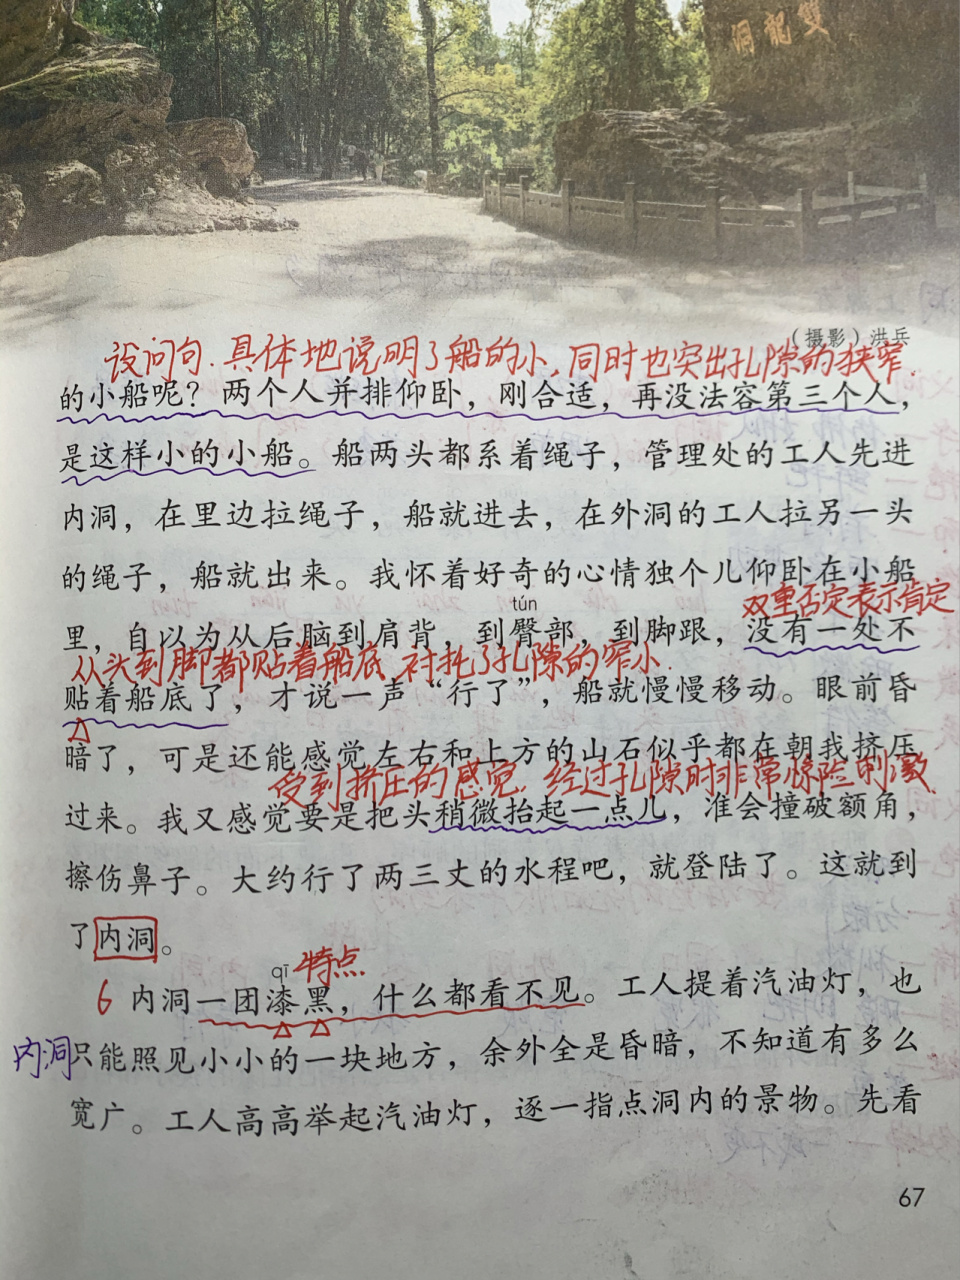 雙龍洞
（摄影）洪兵
设问句.具体地说明了船的小,同时也突出孔隙的狭窄.
的小船呢？两个人并排仰卧，刚合适，再没法容第三个人，
是这样小的小船。船两头都系着绳子，管理处的工人先进
内洞，在里边拉绳子，船就进去，在外洞的工人拉另一头
的绳子，船就出来。我怀着好奇的心情独个儿仰卧在小船
双重否定表示肯定
tún
里，自以为从后脑到肩背，到臀部，到脚跟，没有一处不
从头到脚都贴着船底,衬托了孔隙的窄小.
贴着船底了，才说一声“行了”，船就慢慢移动。眼前昏
暗了，可是还能感觉左右和上方的山石似乎都在朝我挤压
受到挤压的感觉.经过孔隙时非常惊险刺激
过来。我又感觉要是把头稍微抬起一点儿，准会撞破额角，
擦伤鼻子。大约行了两三丈的水程吧，就登陆了。这就到
了内洞。
qī 特点
6 内洞一团漆黑，什么都看不见。工人提着汽油灯，也
内洞 只能照见小小的一块地方，余外全是昏暗，不知道有多么
宽广。工人高高举起汽油灯，逐一指点洞内的景物。先看
67